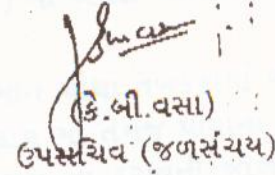 (કે.બી.વસા)
ઉપસચિવ (જળસંચય)